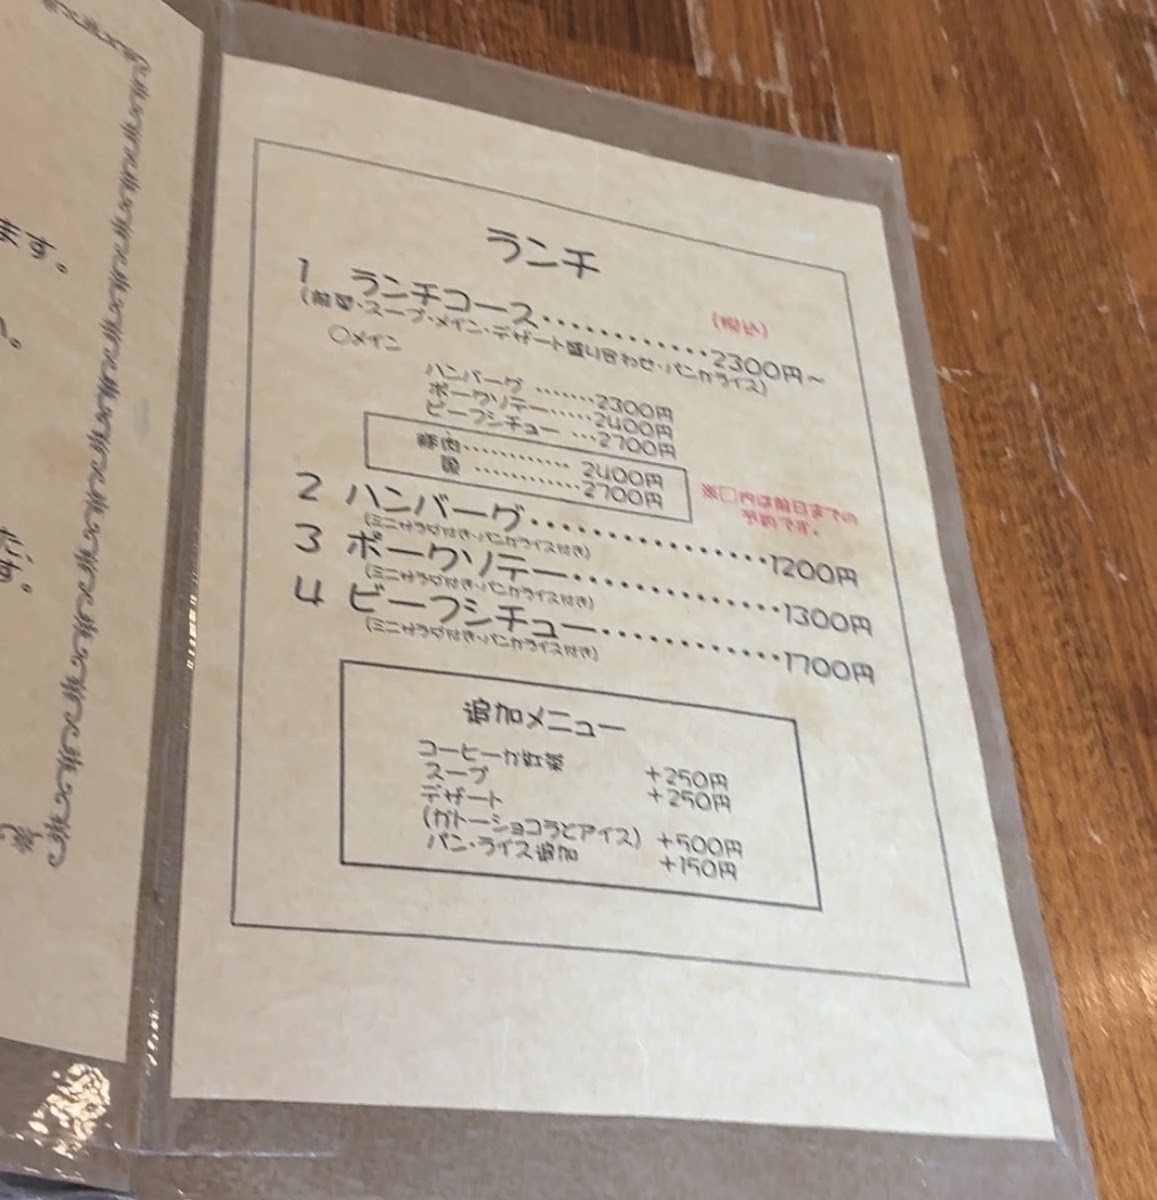 ます。
ランチ
1 ランチコース・・・・・・・・・・・・2300円～
(税込)
(前菜・スープ・メイン・デザート盛り合わせ・パンかライス)
○メイン
ハンバーグ ・・・・・・・2300円
ポークソテー・・・・・2400円
ビーフシチュー ・・・2700円
豚肉・・・・・・・・・・・・ 2400円
・・・・・・・・・・・・2700円
※□内は前日までの
予約です。
2 ハンバーグ・・・・・・・・・・・・・・1200円
(ミニサラダ付き・パンかライス付き)
3 ポークソテー・・・・・・・・・・・・1300円
(ミニサラダ付き・パンかライス付き)
4 ビーフシチュー・・・・・・・・・・1700円
(ミニサラダ付き・パンかライス付き)
追加メニュー
コーヒーか紅茶 +250円
スープ +250円
デザート
(ガトーショコラとアイス) +500円
パン・ライス追加 +150円